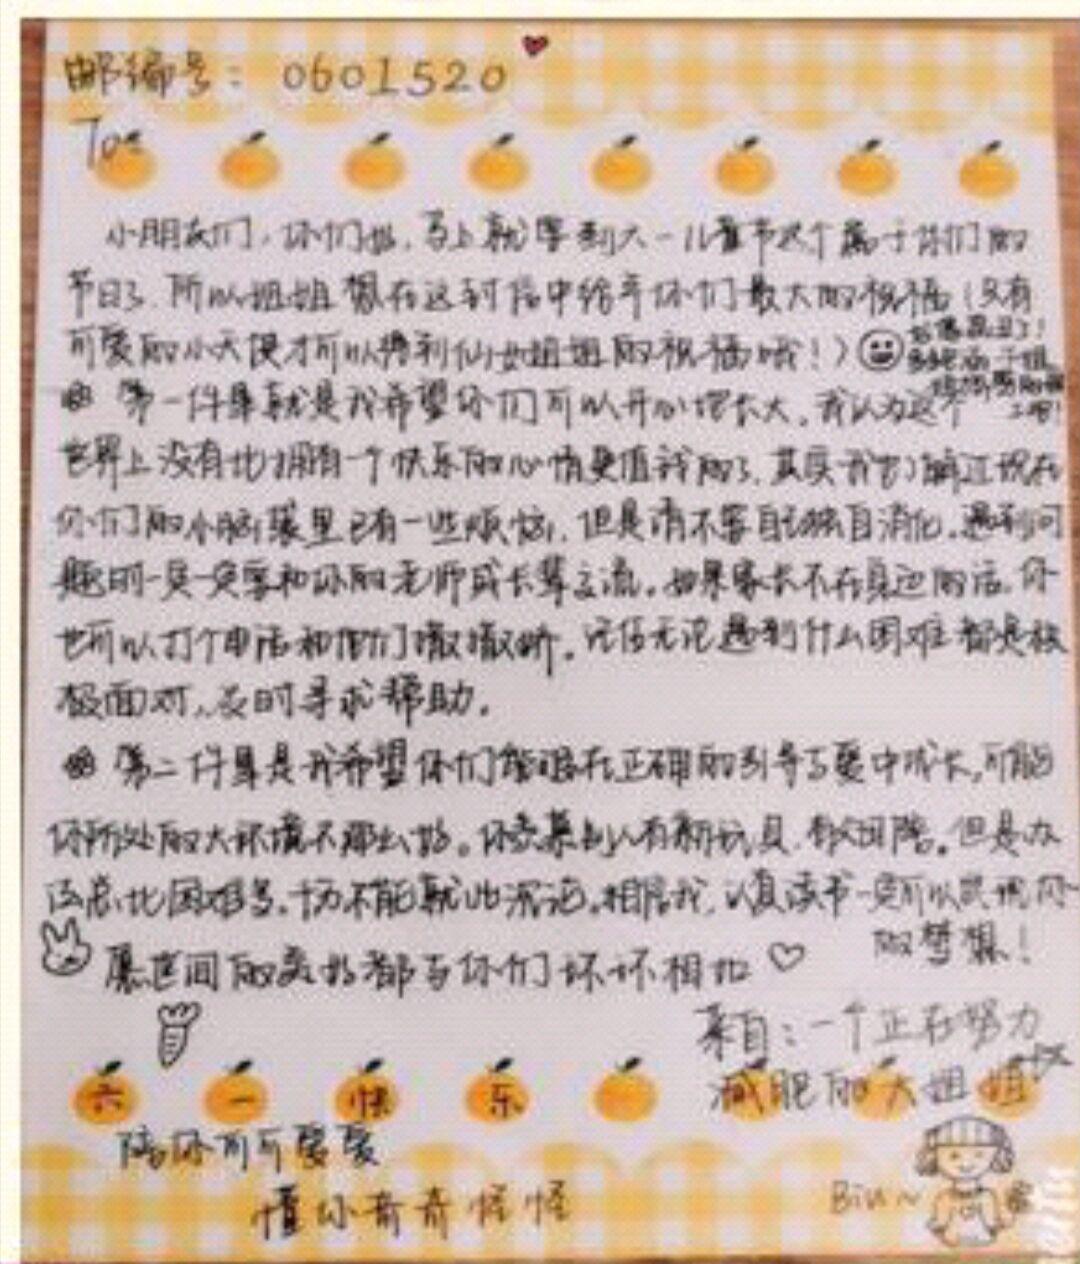 邮编号：0601520
To
小朋友们，你们好，马上就要到六一儿童节这个属于你们的
节日了，所以姐姐想在这封信中给予你们最大的祝福（没有
可爱的小天使才可以得到仙女姐姐的祝福哦！）
第一件事就是我希望你们可以开心地长大，我认为这个
世界上没有比拥有一个快乐的心情更值钱的了，其实我也了解过现在
你们的小脑袋里已有一些烦恼，但是请不要自己独自消化，遇到问
题时一定一定要和你的老师或长辈交流。如果家长不在身边的话，你
也可以打个电话和他们撒撒娇。记住无论遇到什么困难都是积
极面对，及时寻求帮助。
第二件事是我希望你们能够在正确的引导与爱中成长，可能
你所处的大环境不那么好。你羡慕别人有新玩具，但是办
法总比困难多，千万不能就此沉沦。相信我，认真读书一定可以实现你
的梦想！
愿世间的美好都与你们环环相扣
来自：一个正在努力
减肥的大姐姐
六一快乐
陪你可可爱爱
懂你奇奇怪怪
Biu~